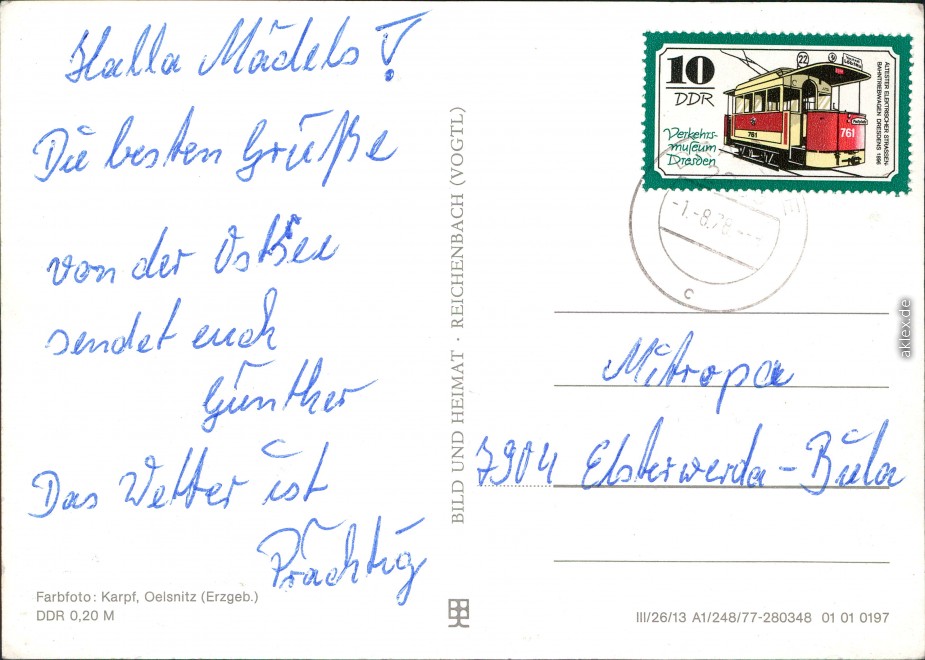 Halla Mädels!
Die besten Grüße
von der Ostsee
sendet euch
Günther
Das Wetter ist
Prächtig
Farbfoto: Karpf, Oelsnitz (Erzgeb.)
DDR 0,20 M
BILD UND HEIMAT · REICHENBACH (VOGTL)
10
DDR
Verkehrs-
museum
Dresden
22
761
761
ÄLTESTER ELEKTRISCHER STRASSEN-
BAHNTRIEBWAGEN DRESDENS 1896
-1.-8.78
c
Mitropa
7904 Elsterwerda-Biela
III/26/13 A1/248/77-280348 01 01 0197
aklex.de